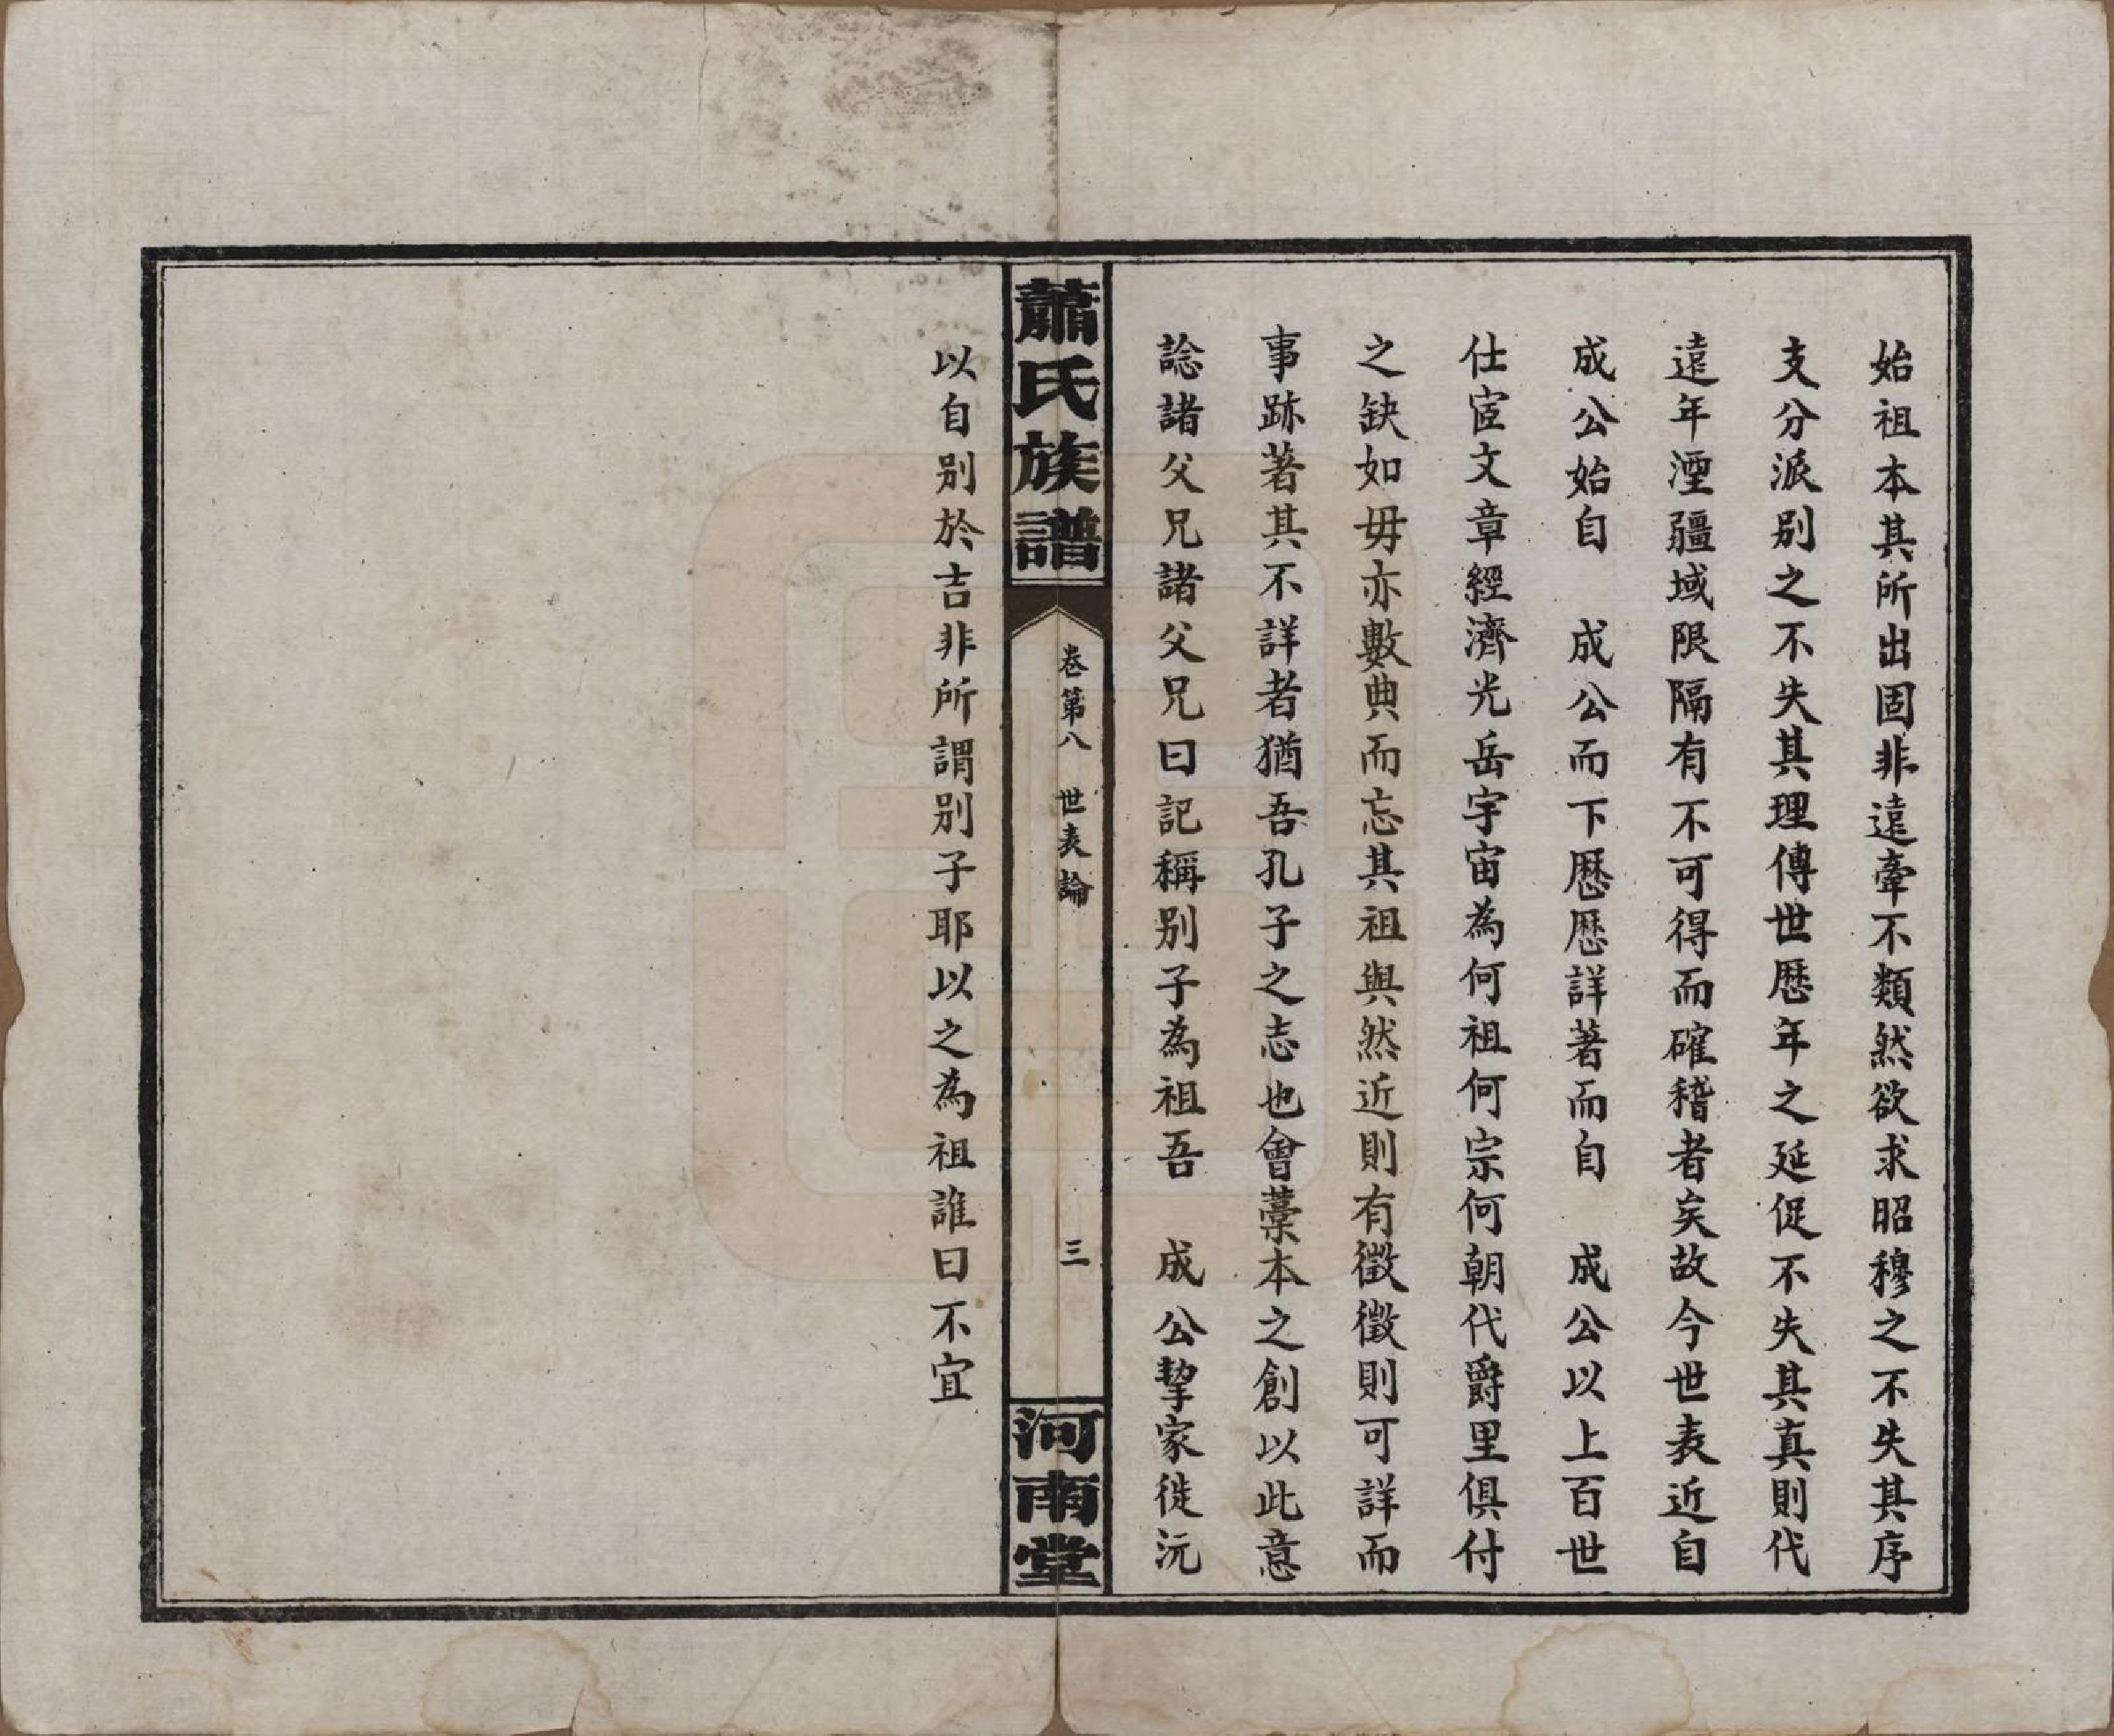 始祖本其所出固非遠牽不類然欲求昭穆之不失其序
支分派别之不失其理傳世歷年之延促不失其真則代
遠年湮疆域限隔有不可得而確稽者矣故今世表近自
成公始自　成公而下歷歷詳著而自　成公以上百世
仕宦文章經濟光岳宇宙為何祖何宗何朝代爵里俱付
之缺如毋亦數典而忘其祖與然近則有徵徵則可詳而
事跡著其不詳者猶吾孔子之志也會藳本之創以此意
諗諸父兄諸父兄曰記稱别子為祖吾　成公挈家徙沅
蕭氏族譜
卷第八　世表論
三
河南堂
以自别於吉非所謂别子耶以之為祖誰曰不宜